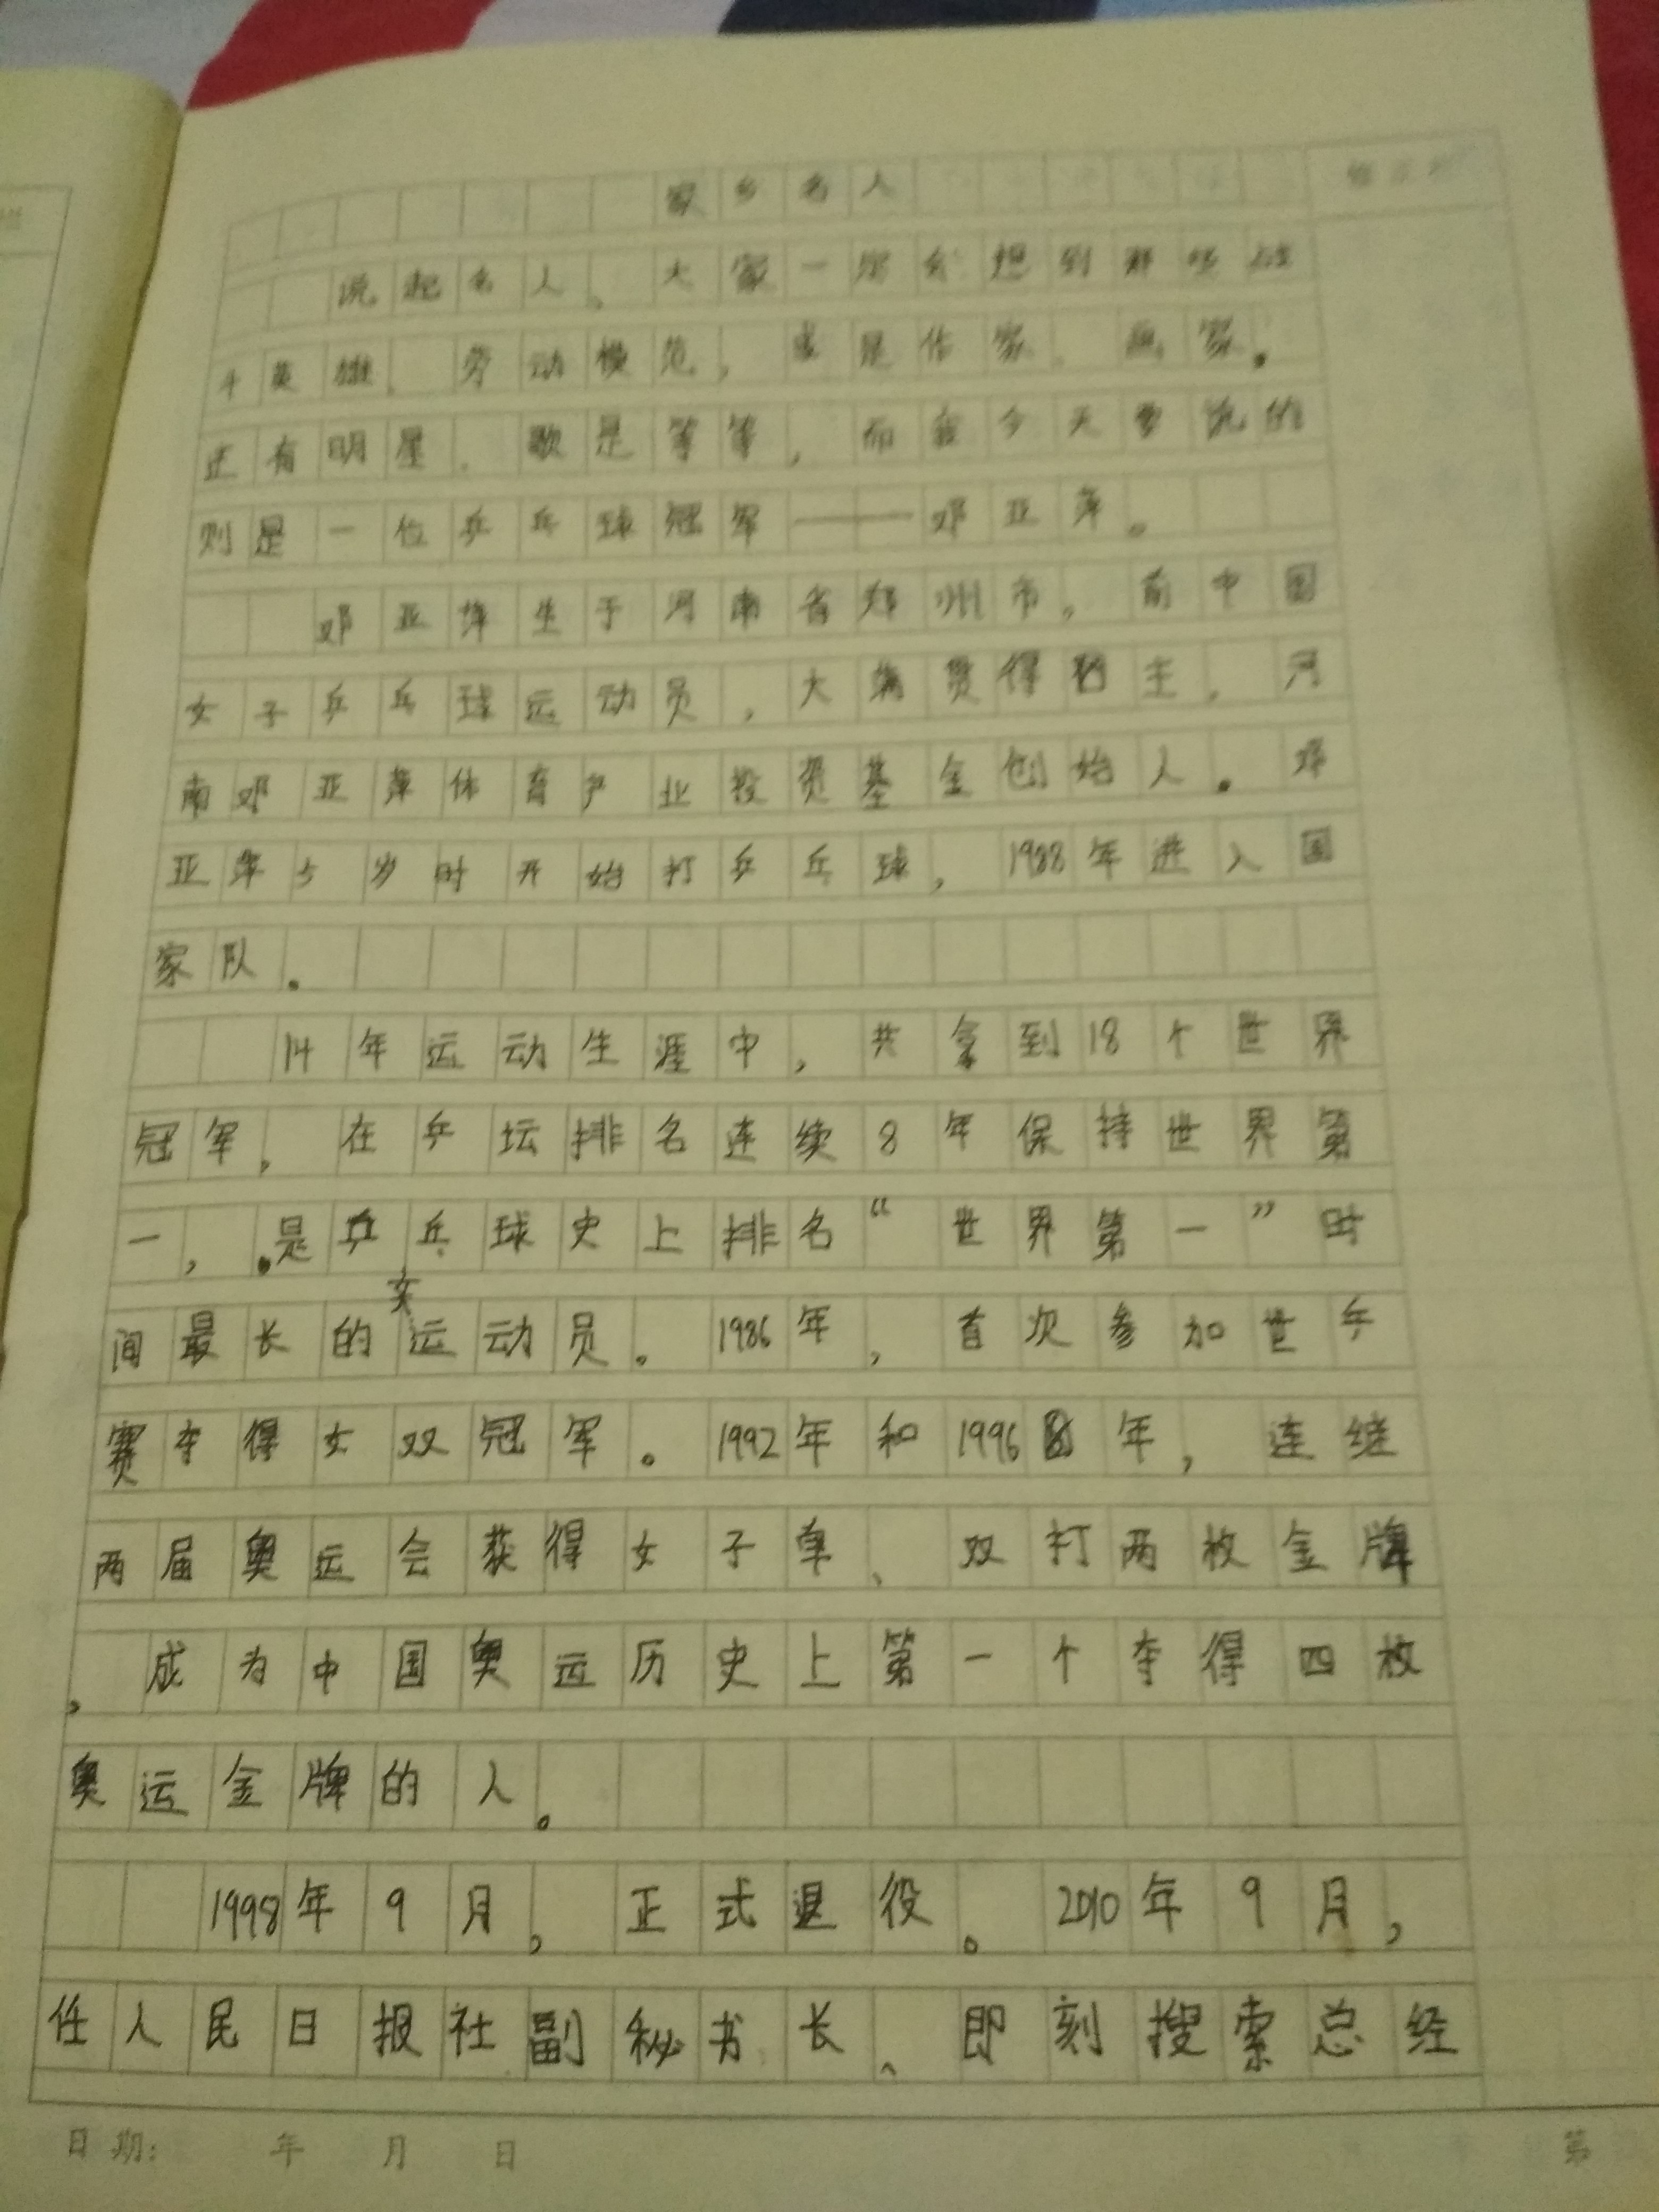 家乡名人
说起名人、大家一定会想到那些战
斗英雄、劳动模范，或是作家、画家。
还有明星、歌星等等，而我今天要说的
则是一位乒乓球冠军——邓亚萍。
邓亚萍生于河南省郑州市。前中国
女子乒乓球运动员，大满贯得主，河
南邓亚萍体育产业投资基金创始人。邓
亚萍5岁时开始打乒乓球，1988年进入国
家队。
14年运动生涯中，共拿到18个世界
冠军，在乒坛排名连续8年保持世界第
一，是乒乓球史上排名“世界第一”时
间最长的女运动员。1986年，首次参加世乒
赛夺得女双冠军。1992年和1996年，连继
两届奥运会获得女子单、双打两枚金牌
，成为中国奥运历史上第一个夺得四枚
奥运金牌的人。
1998年9月，正式退役。2010年9月，
任人民日报社副秘书长、即刻搜索总经
日期： 年 月 日
第